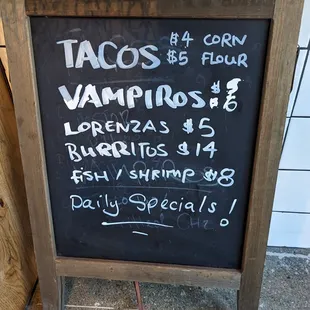 TACOS $4 CORN
$5 FLOUR
VAMPIROS $
LORENZAS $5
BURRITOS $14
FISH / SHRIMP $8
Daily Specials!